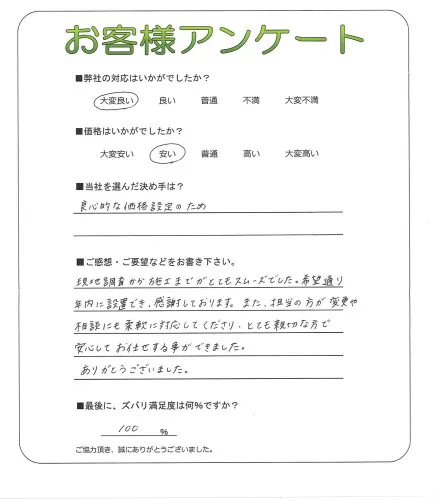 お客様アンケート
■弊社の対応はいかがでしたか？
大変良い 良い 普通 不満 大変不満
■価格はいかがでしたか？
大変安い 安い 普通 高い 大変高い
■当社を選んだ決め手は？
良心的な価格設定のため
■ご感想・ご要望などをお書き下さい。
現地調査から施工までがとてもスムーズでした。希望通り
年内に設置でき、感謝しております。また、担当の方が変更や
相談にも柔軟に対応してくださり、とても親切な方で
安心してお任せする事ができました。
ありがとうございました。
■最後に、ズバリ満足度は何％ですか？
100 ％
ご協力頂き、誠にありがとうございました。